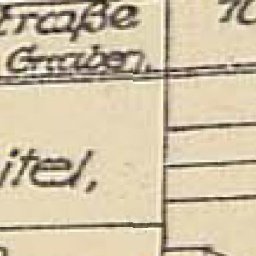 traße
Graben,
itel,